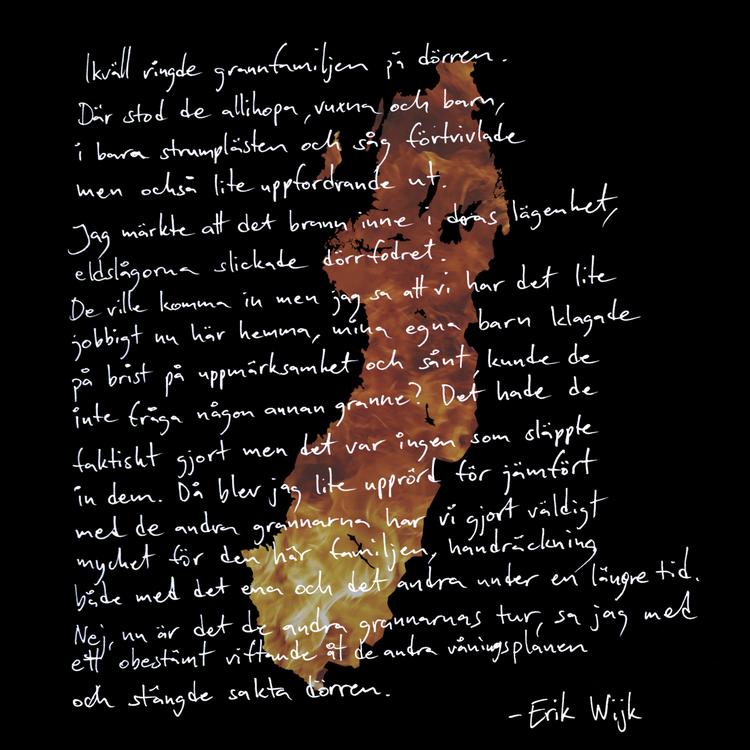 Ikväll ringde grannfamiljen på dörren.
Där stod de allihopa, vuxna och barn,
i bara strumplästen och såg förtvivlade
men också lite uppfordrande ut.
Jag märkte att det brann inne i deras lägenhet,
eldslågorna slickade dörrfodret.
De ville komma in men jag sa att vi har det lite
jobbigt nu här hemma, mina egna barn klagade
på brist på uppmärksamhet och sånt, kunde de
inte fråga någon annan granne? Det hade de
faktiskt gjort men det var ingen som släppte
in dem. Då blev jag lite upprörd för jämfört
med de andra grannarna har vi gjort väldigt
mycket för den här familjen, handräckning
både med det ena och det andra under en längre tid.
Nej, nu är det de andra grannarnas tur, sa jag med
ett obestämt viftande åt de andra våningsplanen
och stängde sakta dörren.
- Erik Wijk